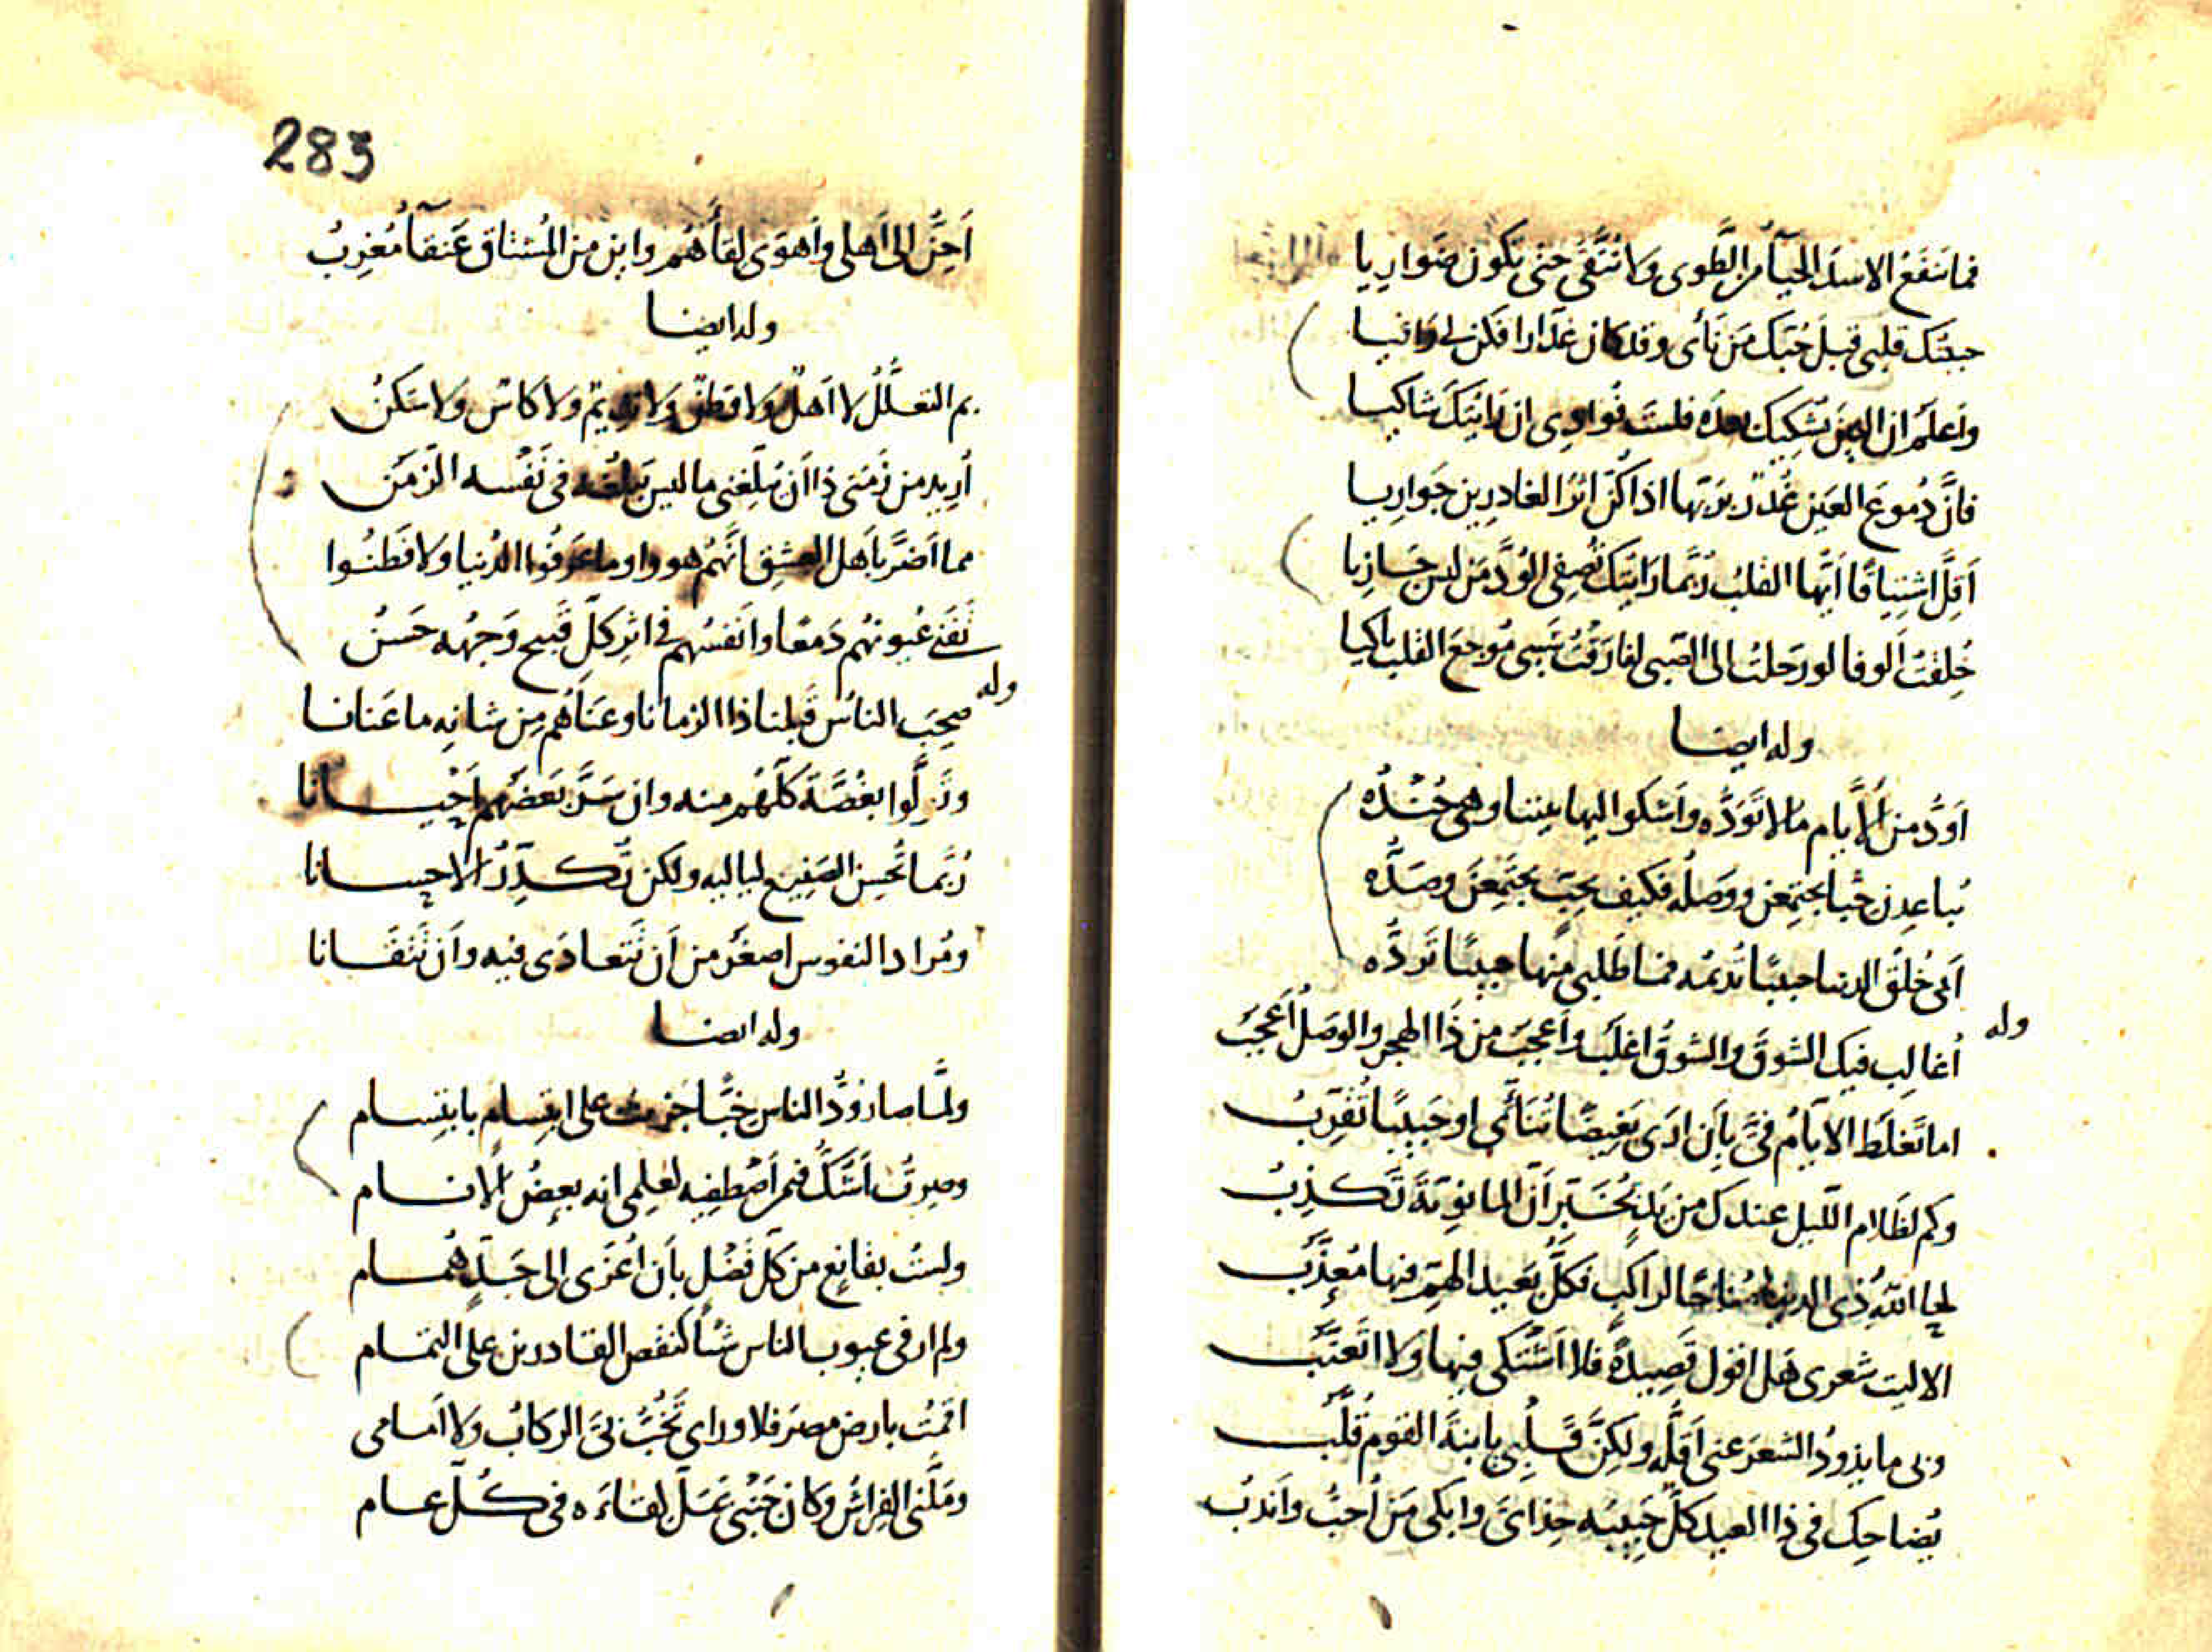 فما ينفع الاسد الحيآء من الطوى ولا تتقى حتى تكون ضواريا
حببتك قلبى قبل حبك من نأى وقد كان غدارا فكن لى وافيا
واعلم ان البين يشكيك بعده فلست فوادى ان رايتك شاكيا
فانَّ دُموع العين غُدْرٌ بربّها اذا كنّ اثر الغادرين جواريا
اقلّ اشتياقا ايّها القلب ربّما رايتك تصفى الودّ من ليس جازيا
خُلقتُ الوفا لو رحلت الى الصبى لفارقت شيبى موجع القلب باكيا
وله ايضا
اودّ من الأيام ما لا تودّه واشكوا اليها بيننا وهى جُنْدُه
يباعدن حبا يجتمعن ووصلُه فكيف بحبّ يجتمعن وصدُّه
ابى خُلق الدنيا حبيبًا تديمه فما طلبى منها حبيبًا تردُّه
وله
اُغالب فيك الشوقَ والشوقُ اغلب واعجب من ذا الهجر والوصلُ اَعجبُ
اما تغلط الايّامُ فىّ بأن ارى بغيضًا تنائى او حبيبًا تُقرّبُ
وكم لظلام الليل عندك من يدٍ تُخبّر أنّ المانويّة تكذبُ
لحا اللهُ ذى الدنيا مُناخًا لراكبٍ فكلُّ بعيد الهمّ فيها معذَّب
الا ليت شعرى هل اقول قصيدةً فلا اشتكى فيها ولا اتعتّب
وبى ما يذودُ الشعر عنى اقلُّه ولكنَّ قلبى يابنة القوم قُلَّب
يُضاحك فى ذا العيد كلٌّ حبيبه حذائى وابكى من اُحبُّ واندبُ
283
اَحنُّ الى اهلى واهوى لقأهم واين من المُشتاق عنقآ مُغربُ
وله ايضا
بم التعلّل لا اهل ولا وطن ولا نديم ولا كاس ولا سكن
اُريد من زمنى ذا ان يبلّغنى ما ليس يبلغه فى نفسه الزمن
مما اضرَّ باهل العشق انّهم هووا وما عرفوا الدنيا ولا فطنُوا
تفنى عيونهم دمعًا وانفسهم فى اثر كلّ قبيح وجهه حسن
وله
صحب الناس قبلنا ذا الزمانا وعناهم من شانه ما عنانا
وتولّوا بغصّة كلّهم منه وان سرّ بعضهم اَحيانا
رُبّما تحسن الصنيع لياليه ولكن تكدّرُ الاحسانا
ومُراد النفوس اصغر من أن نتعادى فيه وأن نتفانا
وله ايضا
ولمّا صار ودُّ الناس خبًّا جزيت على ابتسام بابتسام
وصرتُ اشكُّ فيمن اصطفيه لعلمى انه بعض الانام
ولست بقانع من كل فضل بأن اُعزى الى جدّ همام
ولم ار فى عيوب الناس شيأ كنقص القادرين على التمام
اقمتُ بارض مصر فلا وراى تَخُبُّ بىَ الركاب ولا امامى
وملّنى الفراشُ وكان جنبى يملّ لقاءه فى كل عام